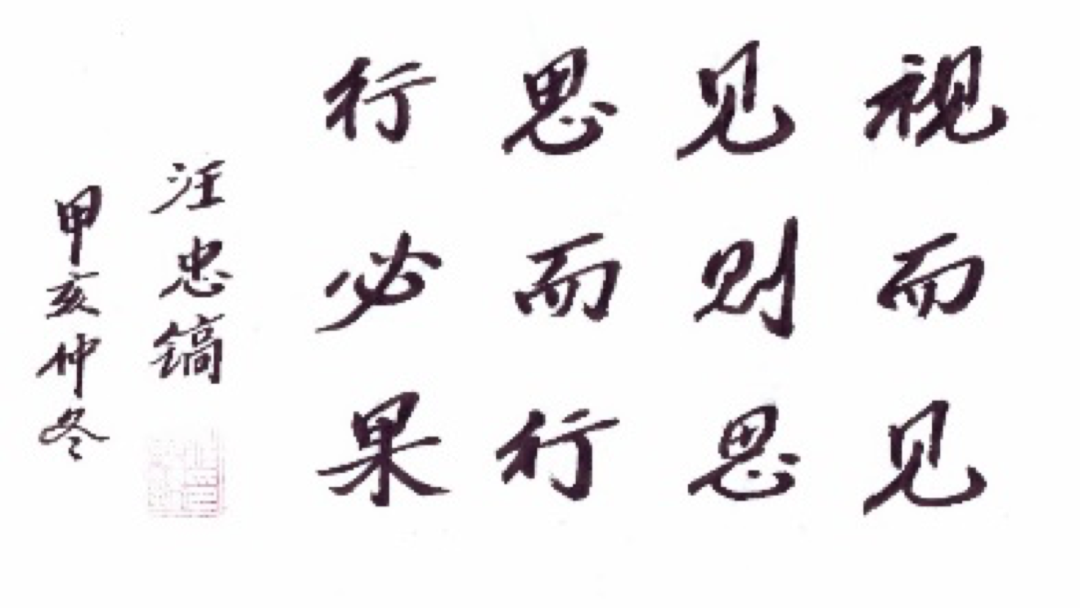 视而见
见则思
思而行
行必果
汪忠镐
甲亥仲冬